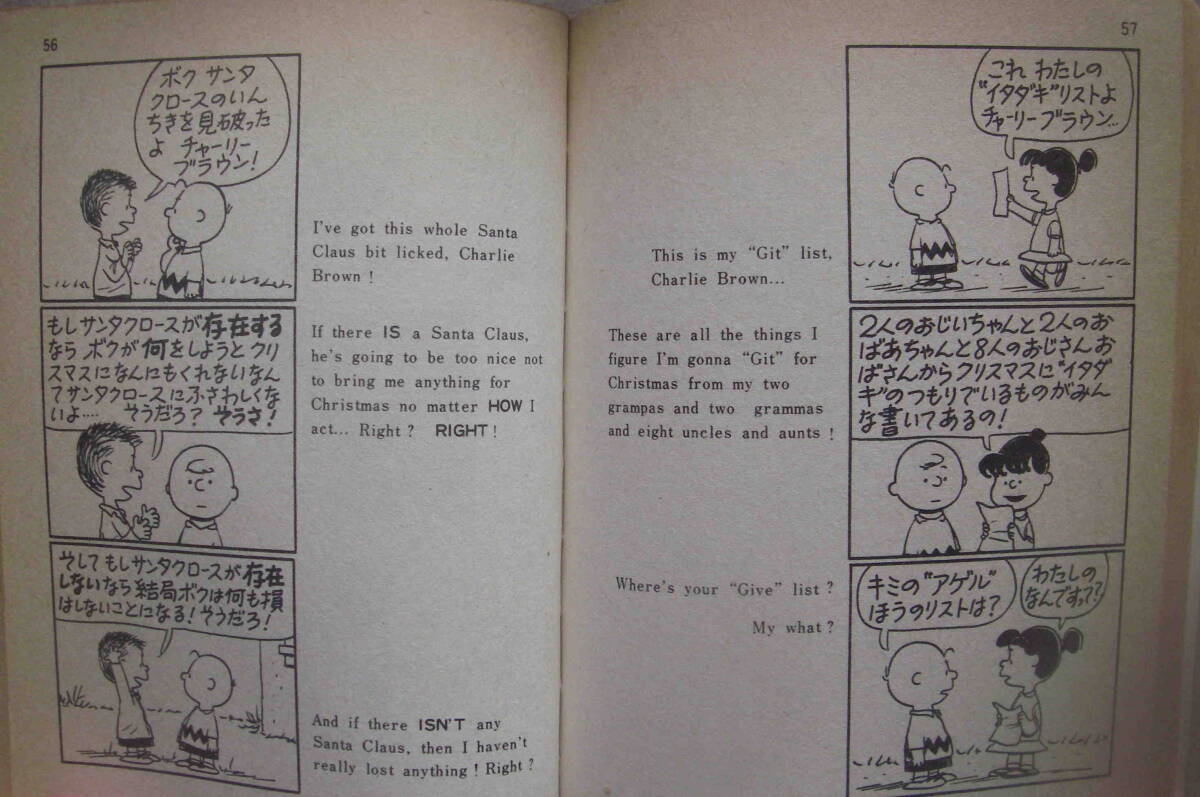 56
ボク サンタ
クロースのいん
ちきを見破った
よ チャーリー
ブラウン!
I've got this whole Santa
Claus bit licked, Charlie
Brown !
もしサンタクロースが存在する
なら ボクが何をしようとクリ
スマスになんにもくれないなん
てサンタクロースにふさわしくな
いよ‥‥ そうだろ? そうさ!
If there IS a Santa Claus,
he's going to be too nice not
to bring me anything for
Christmas no matter HOW I
act... Right ? RIGHT !
そしてもしサンタクロースが存在
しないなら 結局ボクは何も損
はしないことになる! そうだろ!
And if there ISN'T any
Santa Claus, then I haven't
really lost anything ! Right ?
57
これ わたしの
"イタダキ"リストよ
チャーリーブラウン…
This is my “Git” list,
Charlie Brown...
2人のおじいちゃんと2人のお
ばあちゃんと8人のおじさんお
ばさんからクリスマスに"イタダ
キ"のつもりでいるものがみん
な書いてあるの!
These are all the things I
figure I'm gonna “Git” for
Christmas from my two
grampas and two grammas
and eight uncles and aunts !
キミの"アゲル"
ほうのリストは?
わたしの
なんですって?
Where's your “Give” list ?
My what ?